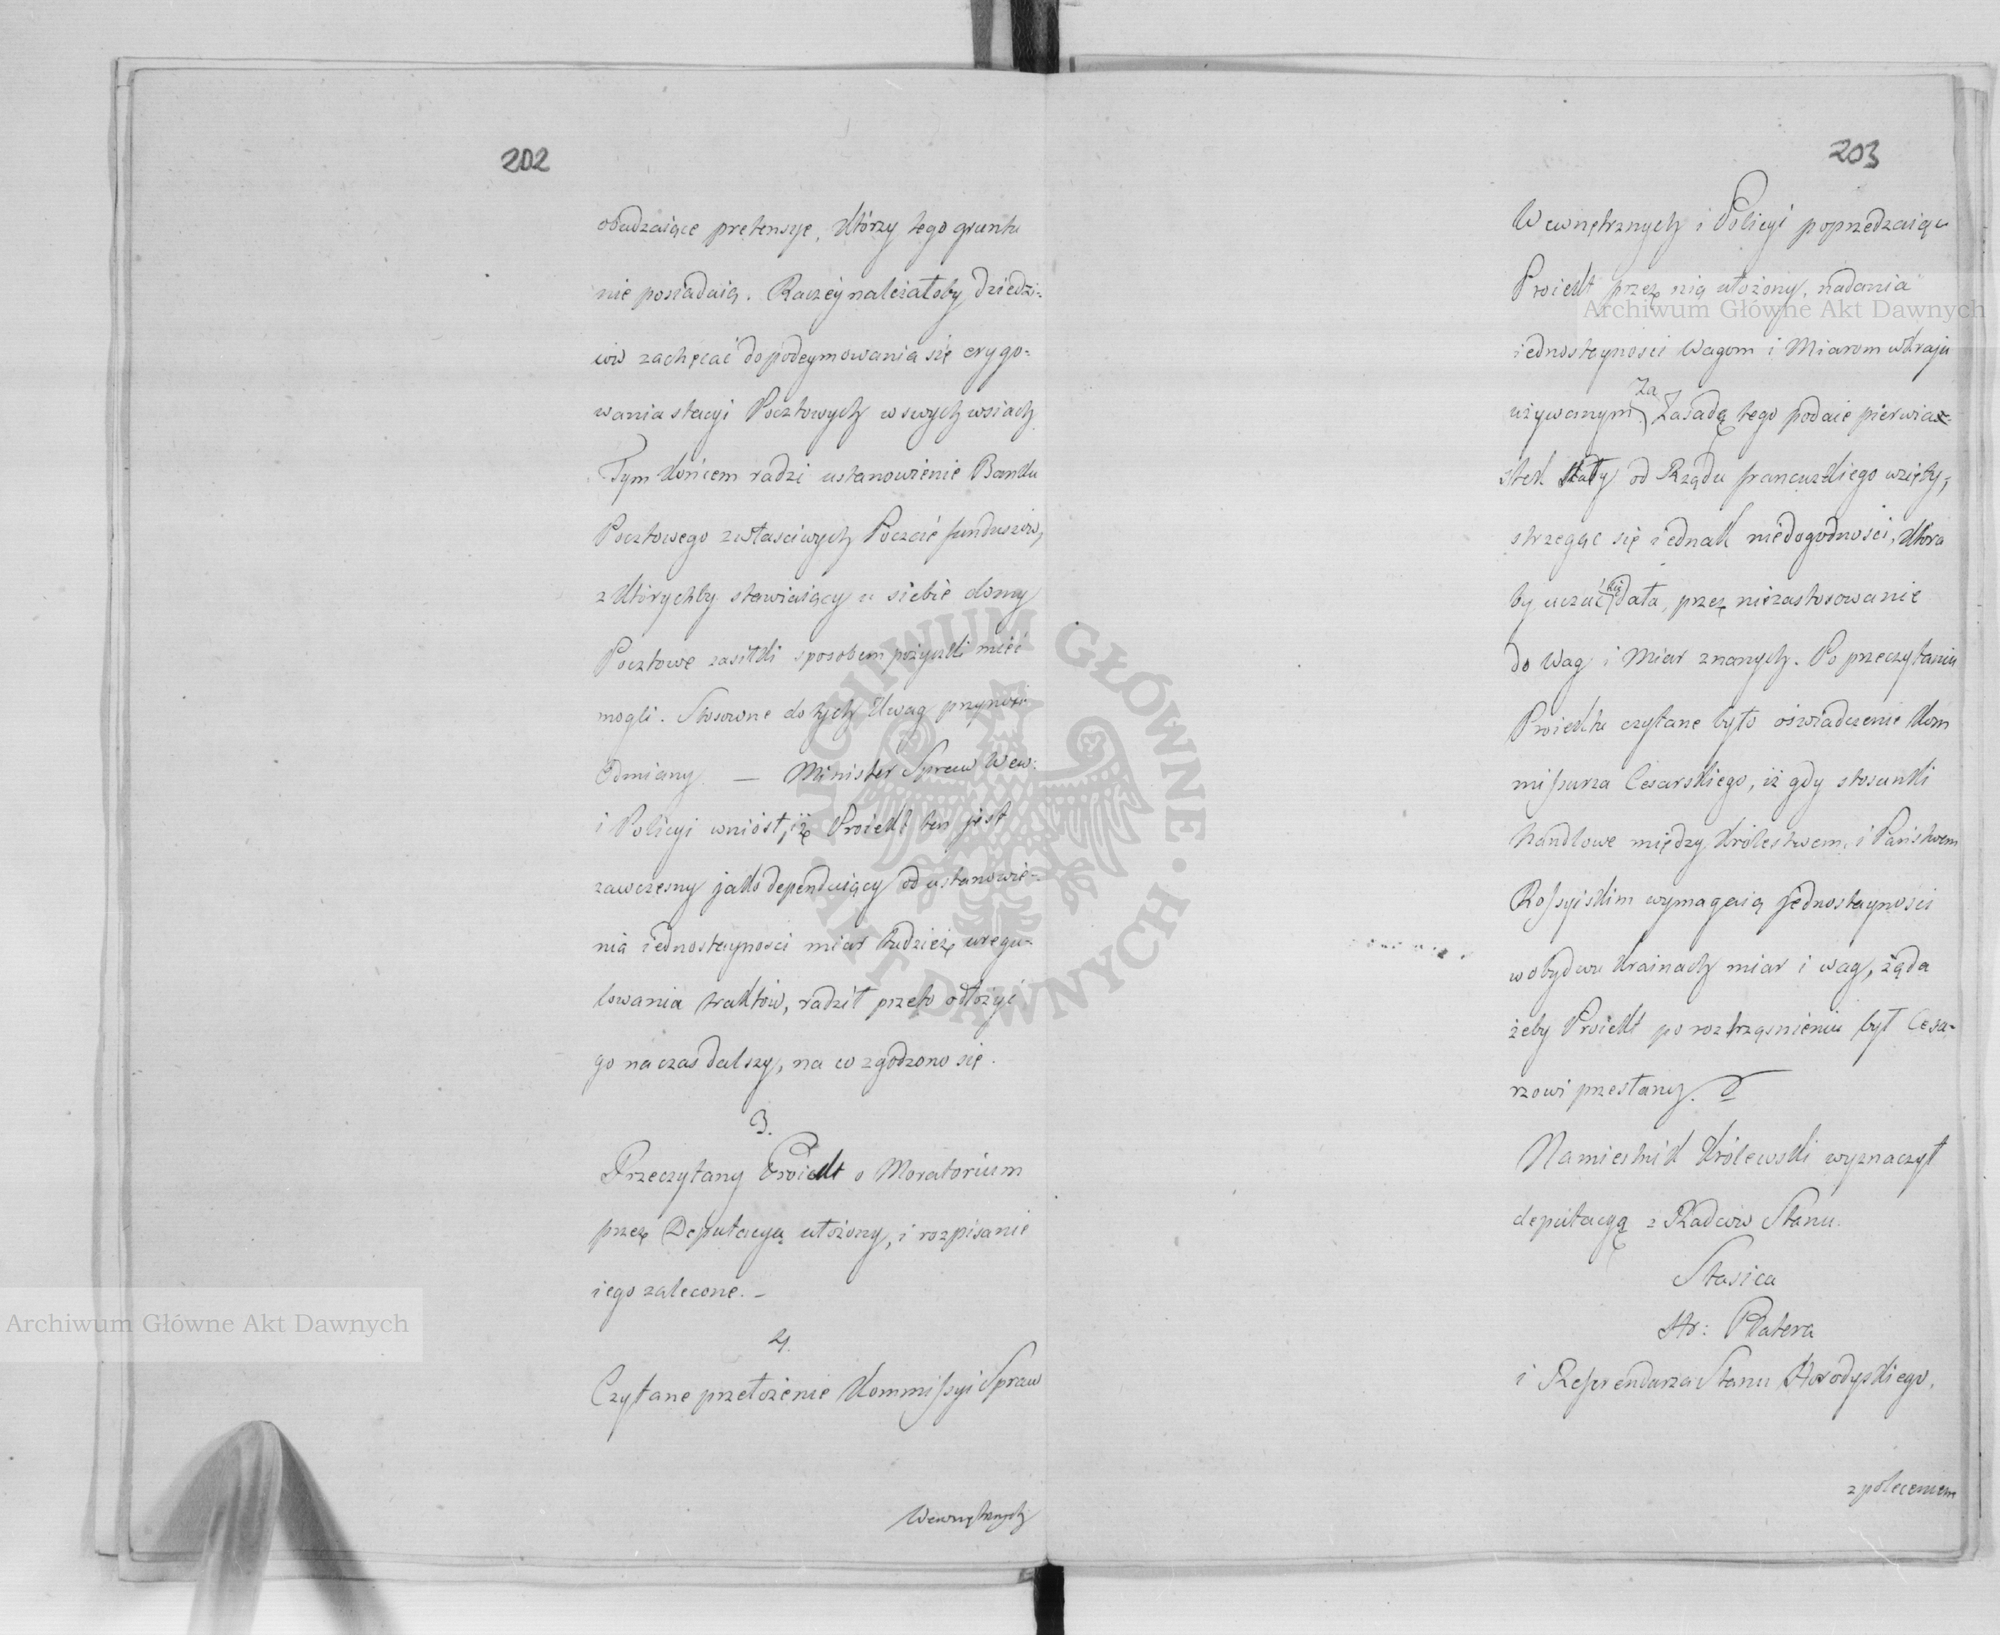 202
osadzaiące pretensye, którzy tego gruntu
nie posiadaią. Raczey należałoby dziedzi-
ców zachęcać do podeymowania się erygo-
wania stacyi Pocztowych w swych wsiach
Tym końcem radzi ustanowienie Banku
Pocztowego z właściwych Poczcie funduszów,
z którychby stawiaiący u siebie domy
Pocztowe zasiłki sposobem pożyczki mieć
mogli. Stosowne do tych Uwag przynosi
Odmiany — Minister Spraw Wew:
i Policyi wniósł, iż Proiekt ten jest
zawczesny jako dependuiący od ustanowie-
nia iednostayności miar tudzież uregu-
lowania traktów, radził przeto odłożyć
go na czas dalszy, na co zgodzono się.
3.
Przeczytany Proiekt o Moratorium
przez Deputacyą ułożony, i rozpisanie
iego zalecone. –
4.
Czytane przełożenie Kommissyi Spraw
Wewnętrznych
203
Wewnętrznych i Policyi poprzedzaiące
Proiekt przez nią ułożony, nadania
iednostayności Wagom i Miarom w kraju
używanym. Za Zasadę tego podaie pierwia-
stek stały od Rządu francuzkiego wzięty,
strzegąc się iednak niedogodności, która
by uczuć się dała, przez niezastosowanie
do Wag i Miar znanych. Po przeczytaniu
Proiektu czytane było oświadczenie Kom
missarza Cesarskiego, iż gdy stosunki
handlowe między Królestwem, i Państwem
Rossyiskim wymagaią jednostayności
w obydwu Krainach miar i wag, żąda
żeby Proiekt po roztrząśnieniu był Cesa-
rzowi przesłany.
Namiestnik Królewski wyznaczył
deputacyą z Radców Stanu.
Stasica
Hr: Platera
i Referendarza Stanu Horodyskiego,
z poleceniem
Archiwum Główne Akt Dawnych
Archiwum Główne Akt Dawnych
ARCHIWUM GŁÓWNE · AKT DAWNYCH ·